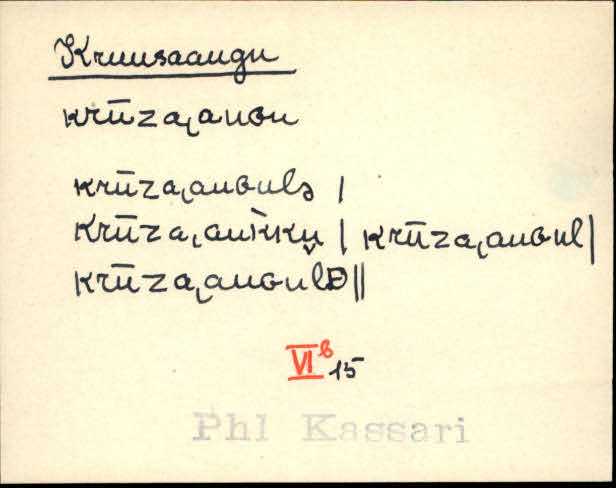 Kruusaaugu
krūza˛auɢu
krūza˛auɢulə |
krūza˛aùkku̬ | krūza˛auɢul |
krūza˛auɢulD ||
VI b 15
Phl Kassari